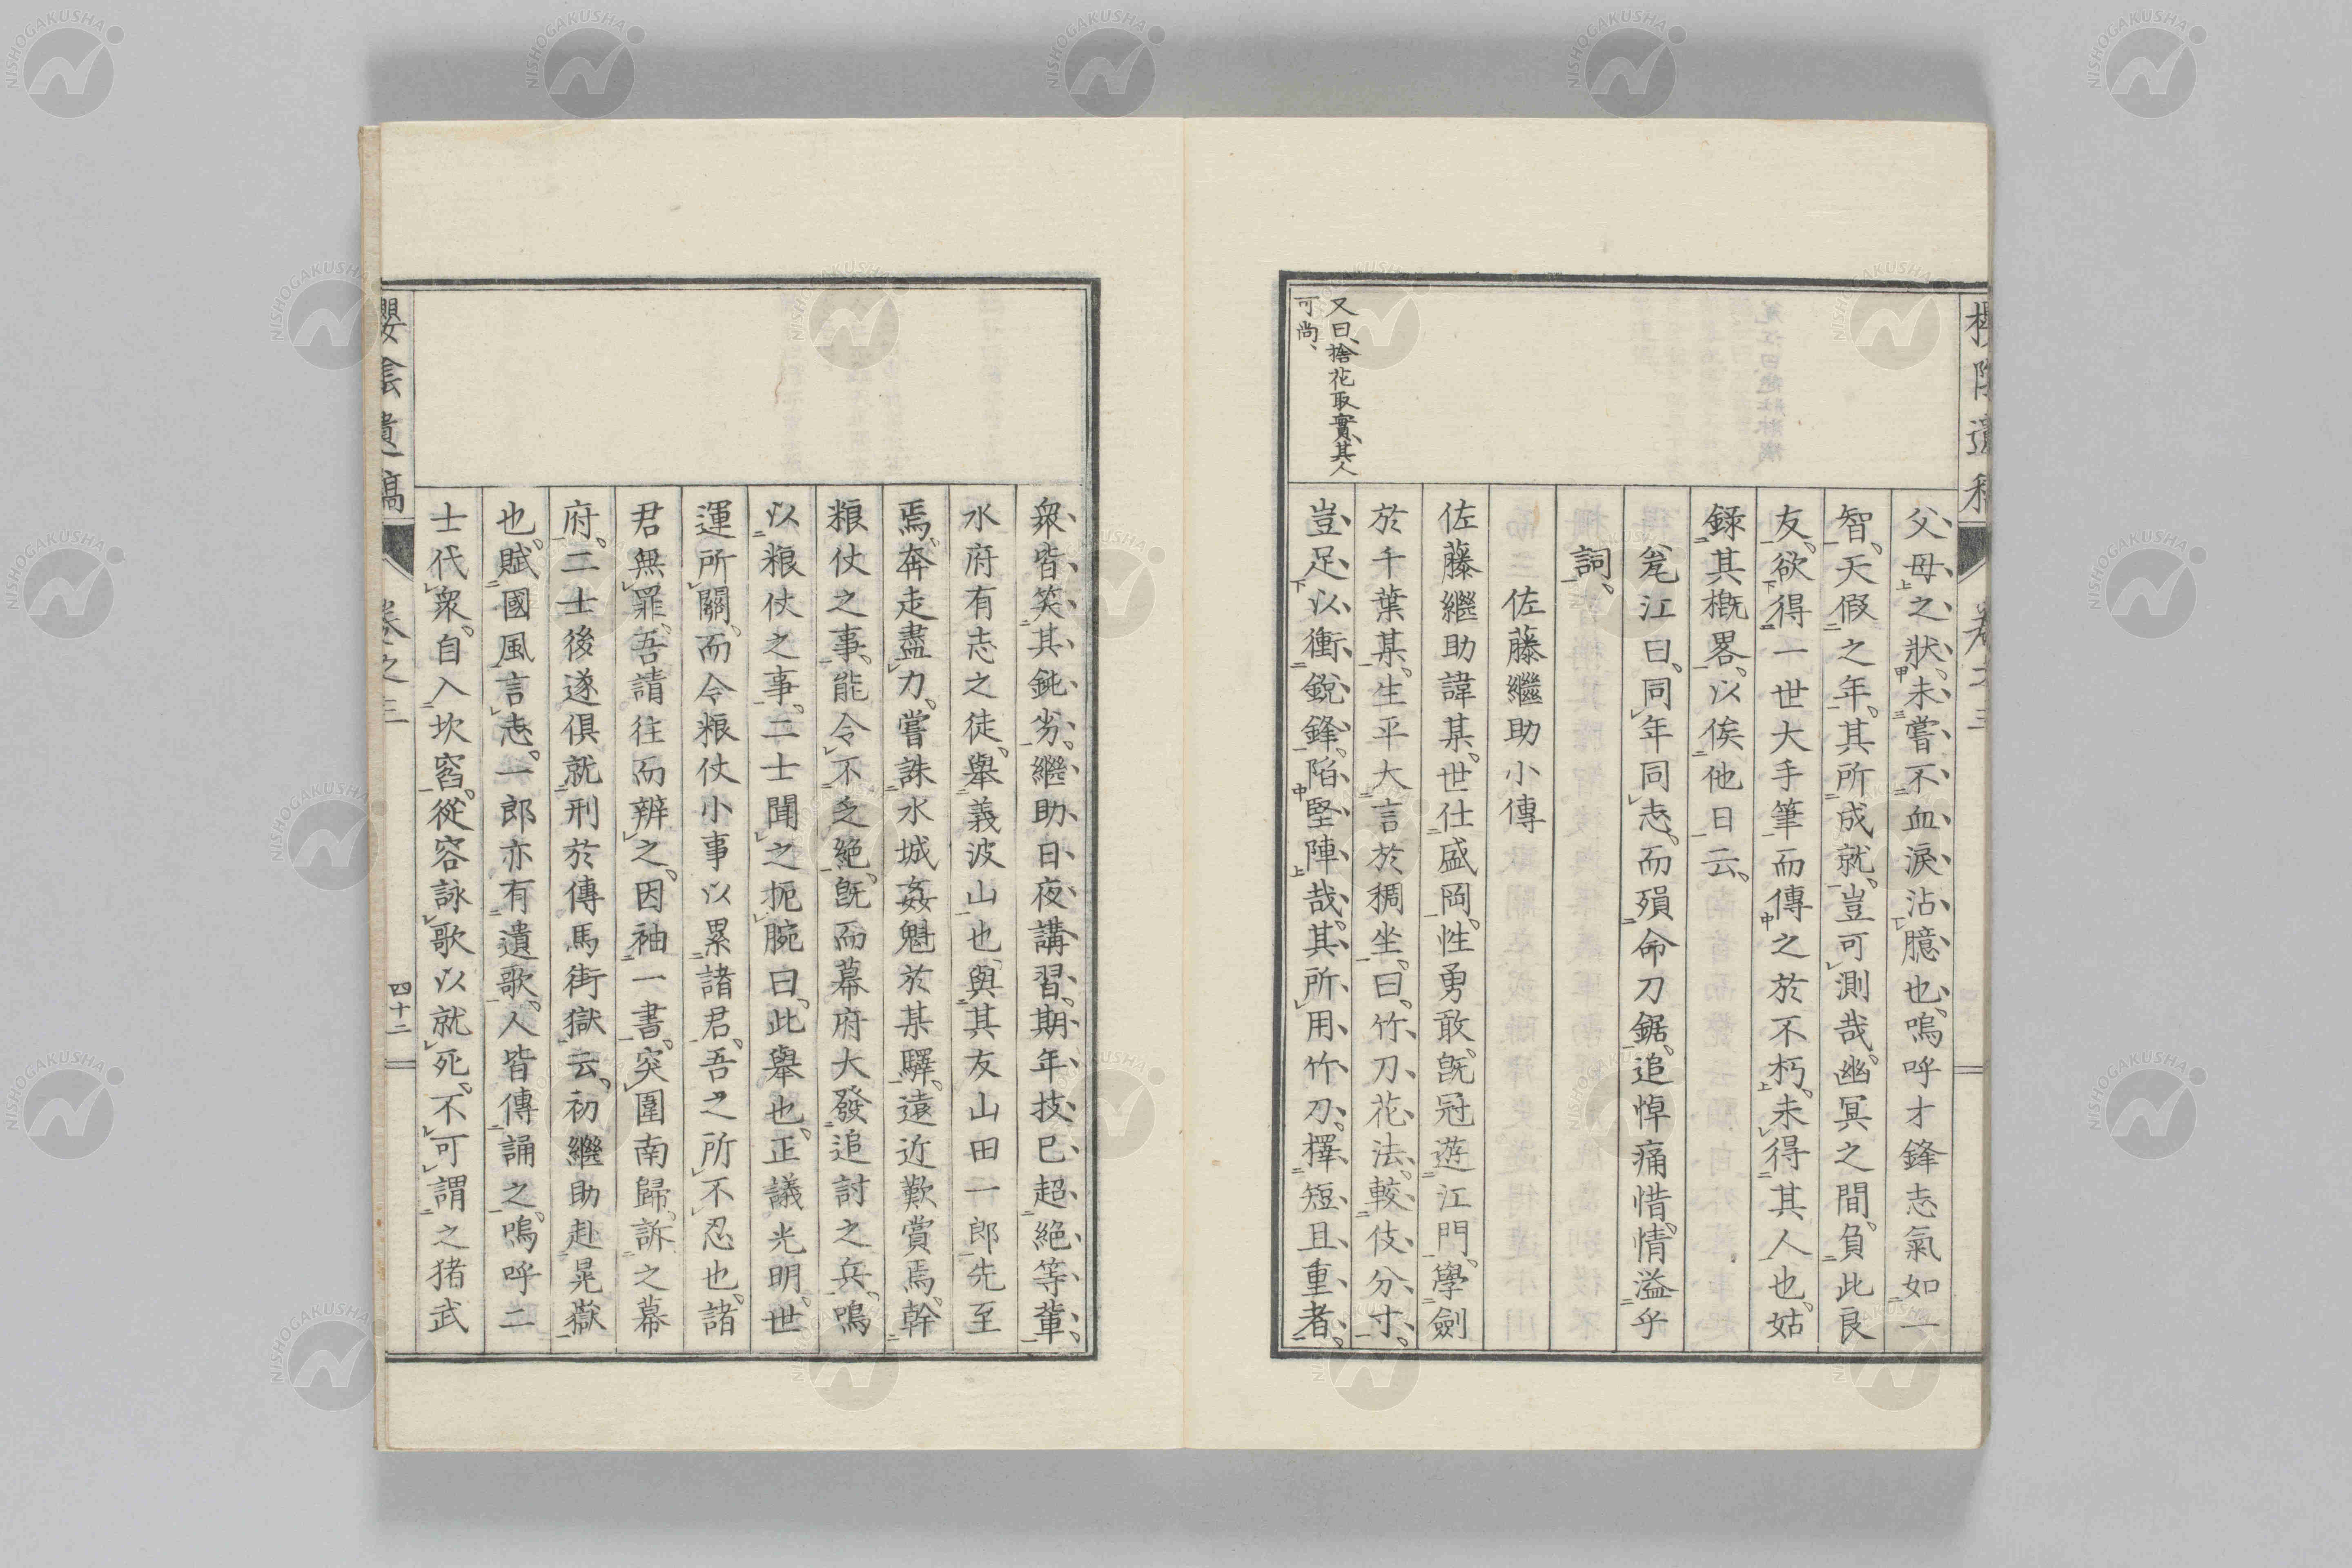 櫻陰遺稿 卷之三
父母之狀、未嘗不血淚沾臆也、嗚呼才鋒志氣如一
智。天假之年。其所成就。豈可測哉。幽冥之間。負此良
友。欲得一世大手筆而傳之於不朽。未得其人也。姑
錄其概畧。以俟他日云。
鵞江曰。同年同志。而殞命刀鋸。追悼痛惜。情溢乎
詞。
佐藤繼助小傳
佐藤繼助諱某。世仕盛岡。性勇敢。既冠遊江門。學劍
於千葉某。生平大言於稠坐。曰。竹刀花法。較伎分寸。
豈足以衝銳鋒。陷堅陣哉。其所用竹刀。擇短且重者。
又曰、捨花取實、其人
可尚、
衆皆笑其鈍劣。繼助日夜講習。期年技已超絕等輩。
水府有志之徒。舉義波山也。與其友山田一郎先至
焉。奔走盡力。嘗誅水城姦魁於某驛。遠近歎賞焉。幹
粮仗之事。能令不乏絕。既而幕府大發追討之兵。鳴
以粮仗之事。二士聞之扼腕曰。此舉也。正議光明。世
運所關。而令粮仗小事以累諸君。吾之所不忍也。諸
君無罪。吾請往而辨之。因袖一書。突圍南歸。訴之幕
府。二士後遂俱就刑於傳馬街獄云。初繼助赴晃嶽
也。賦國風言志。一郎亦有遺歌。人皆傳誦之。嗚呼二
士代衆。自入坎窞。從容詠歌以就死。不可謂之猪武
櫻陰遺稿 卷之三 四十二